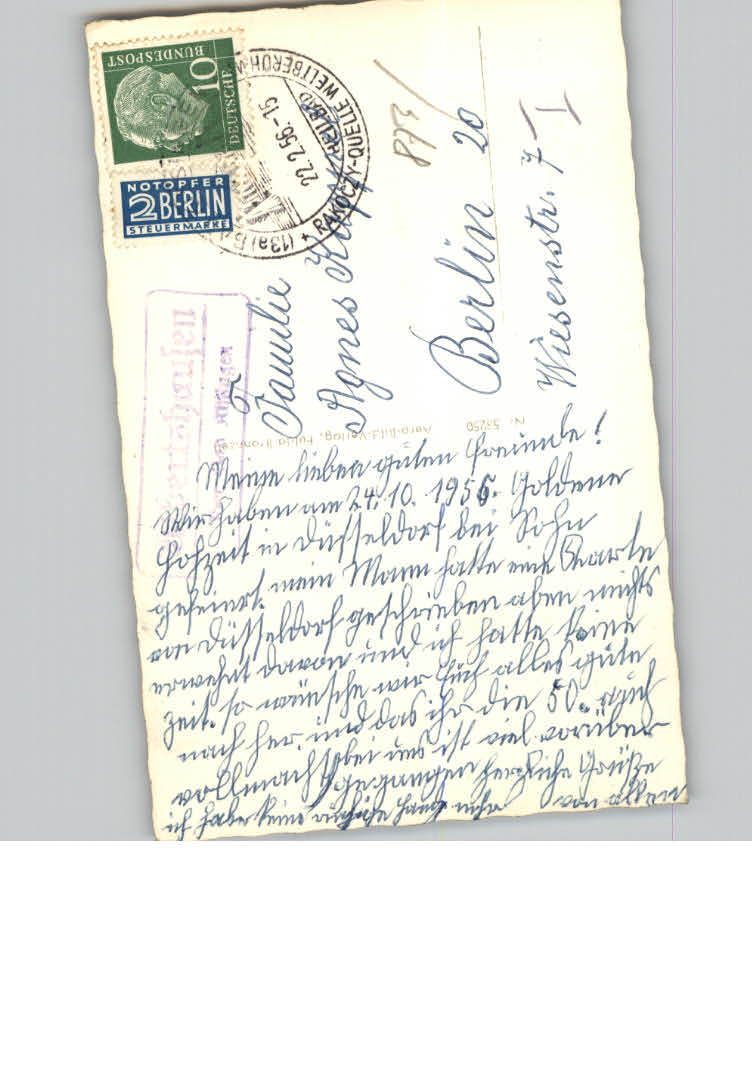 BUNDESPOST
10
DEUTSCHE
NOTOPFER
2 BERLIN
STEUERMARKE
(13a)
22.2.56.-15
HEILBAD
+ RAKOCZY-QUELLE WELTBERÜHM
873
Familie
Agnes
Berlin 20
Wiesenstr. 7 I
Nr. 53250
Aero-Bild-Verlag, Fulda
Meine lieben guten Freunde!
Wir haben am 24.10.1955. Goldene
Hohzeit in Düsseldorf bei Sohn
gefeiert. mein Mann hatte eine Karte
von Düsseldorf geschrieben aben nichts
erwehnt davon und ich hatte keine
Zeit. so wünsche wir Euch alles gute
nach her, und das ihr die 50. auch
vollmacht bei uns ist viel vorüber
gegangen herzliche Grüsze
ich habe keine mehr von allen